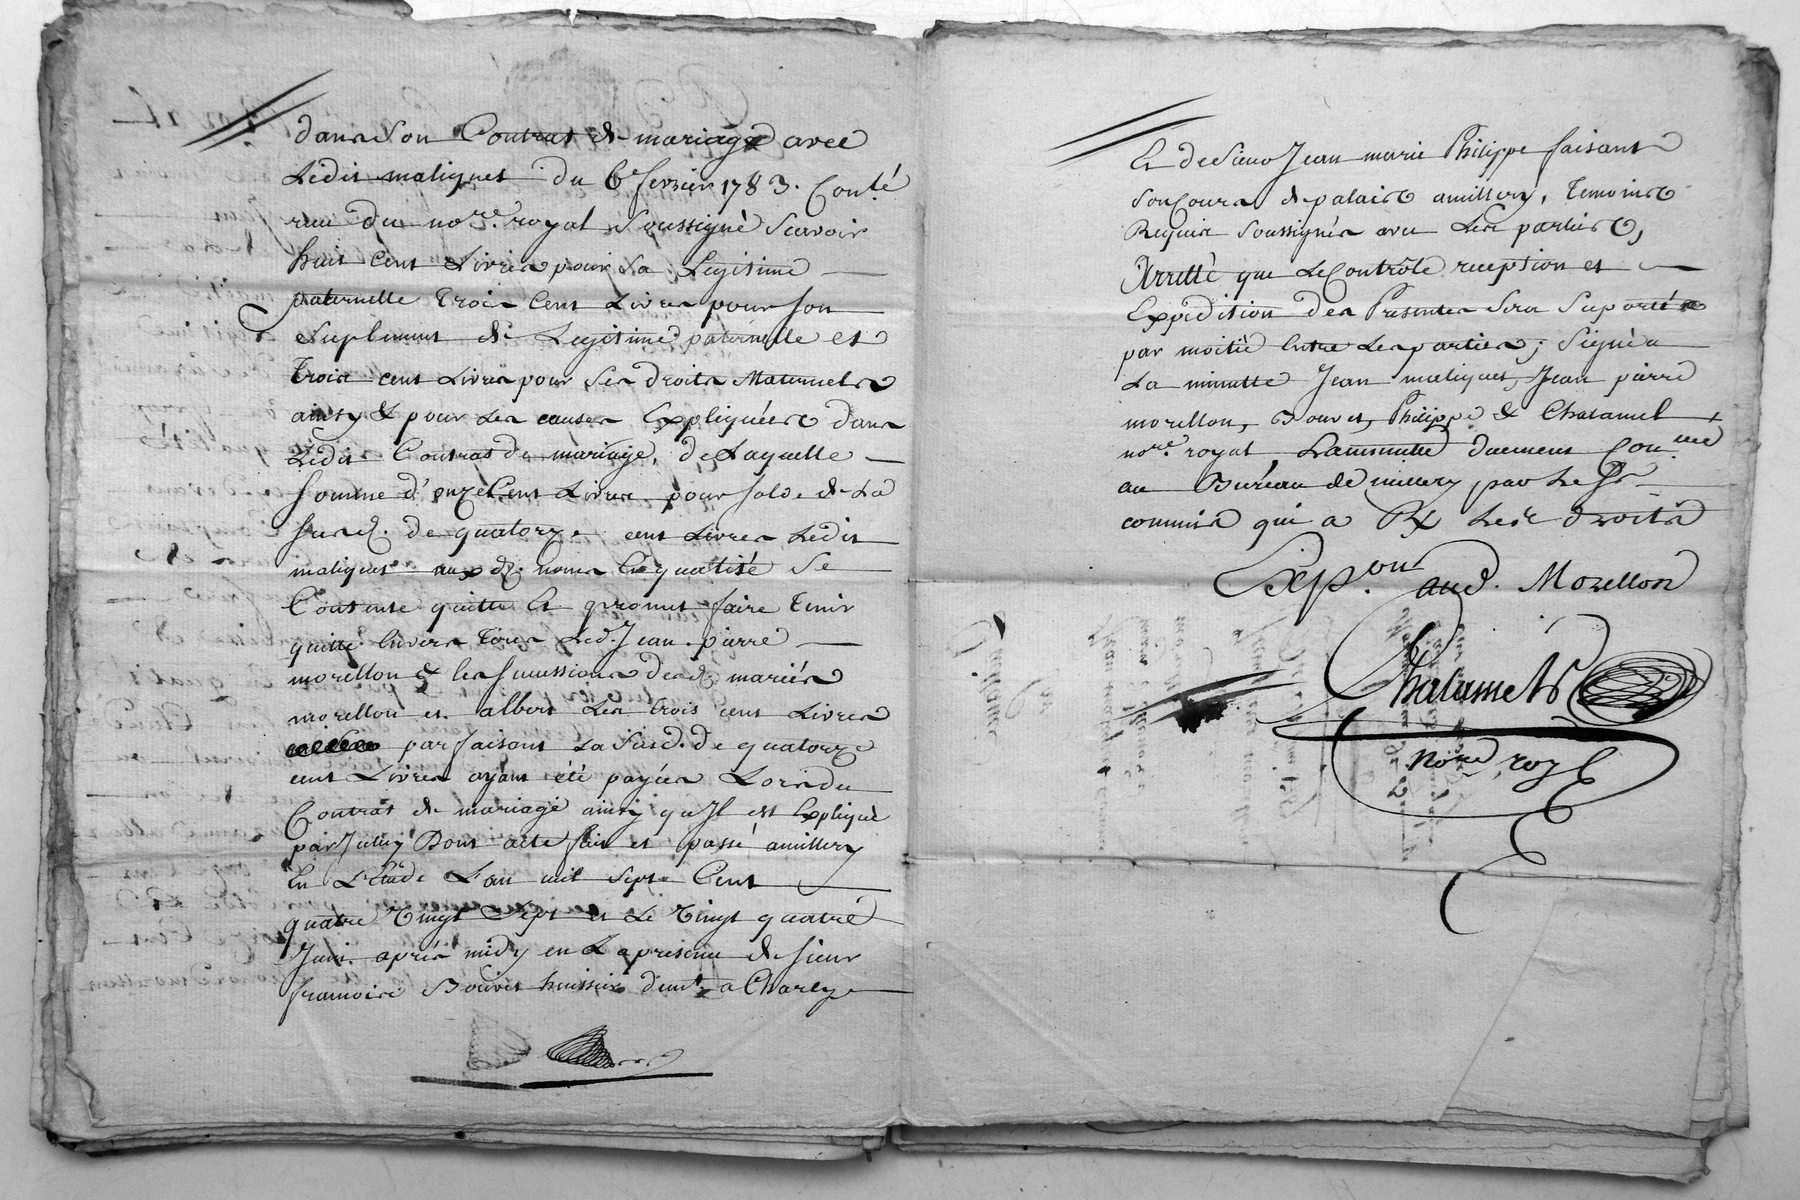 dans Son Contrat de mariage avec
Ledit matiques du 6e fevrier 1783. Conté
reçu du no.re royal Soussigné Scavoir
huit Cent Livres pour Sa Legitime
paternelle trois Cent Livres pour Son
Suplement de Legitime paternelle et
trois cent Livres pour Ses droits Maternels
ainsy & pour Les causes Expliquées dans
Ledit Contrat de mariage, de Laquelle
Somme d'onze Cent Livres pour Solde de La
Susd. de quatorze cent Livres Ledit
matiques aux d. noms En qualité Se
Contente quitte Et promet faire tenir
quitte Envers tous Led. Jean pierre
morellon & les Successions desd. mariés
morellon et albert Les trois cent Livres
parfaisant La Susd. de quatorze
cent Livres ayant été payées Lors du
Contrat de mariage ainsy qu'Il est Expliqué
par Iceluy Dont acte fait et passé a millery
En L'étude L'an mil Sept Cent
quatre Vingt Sept et Le Vingt quatre
Juin après midy en La presence de Sieur
francois Bouvet huissier demt. a Charly
Et de Sieur Jean marie Philippe faisant
Son Cours de palais a millery, Temoins
Requis Soussignés avec Les parties,
Arretté que Le Contrôle reception et
Expedition des Presentes Sera Suporté
par moitié Entre Les parties; Signés a
La minutte Jean matiques, Jean pierre
morellon, Bouvet, Philippe & Chalamel
no.re royal, La minutte duement Con.ллé
au Bureau de millery par Le Sr
commis qui a Rx Lesd. droits
Exp.on aud. Morellon
Chalamel
No.re roy.